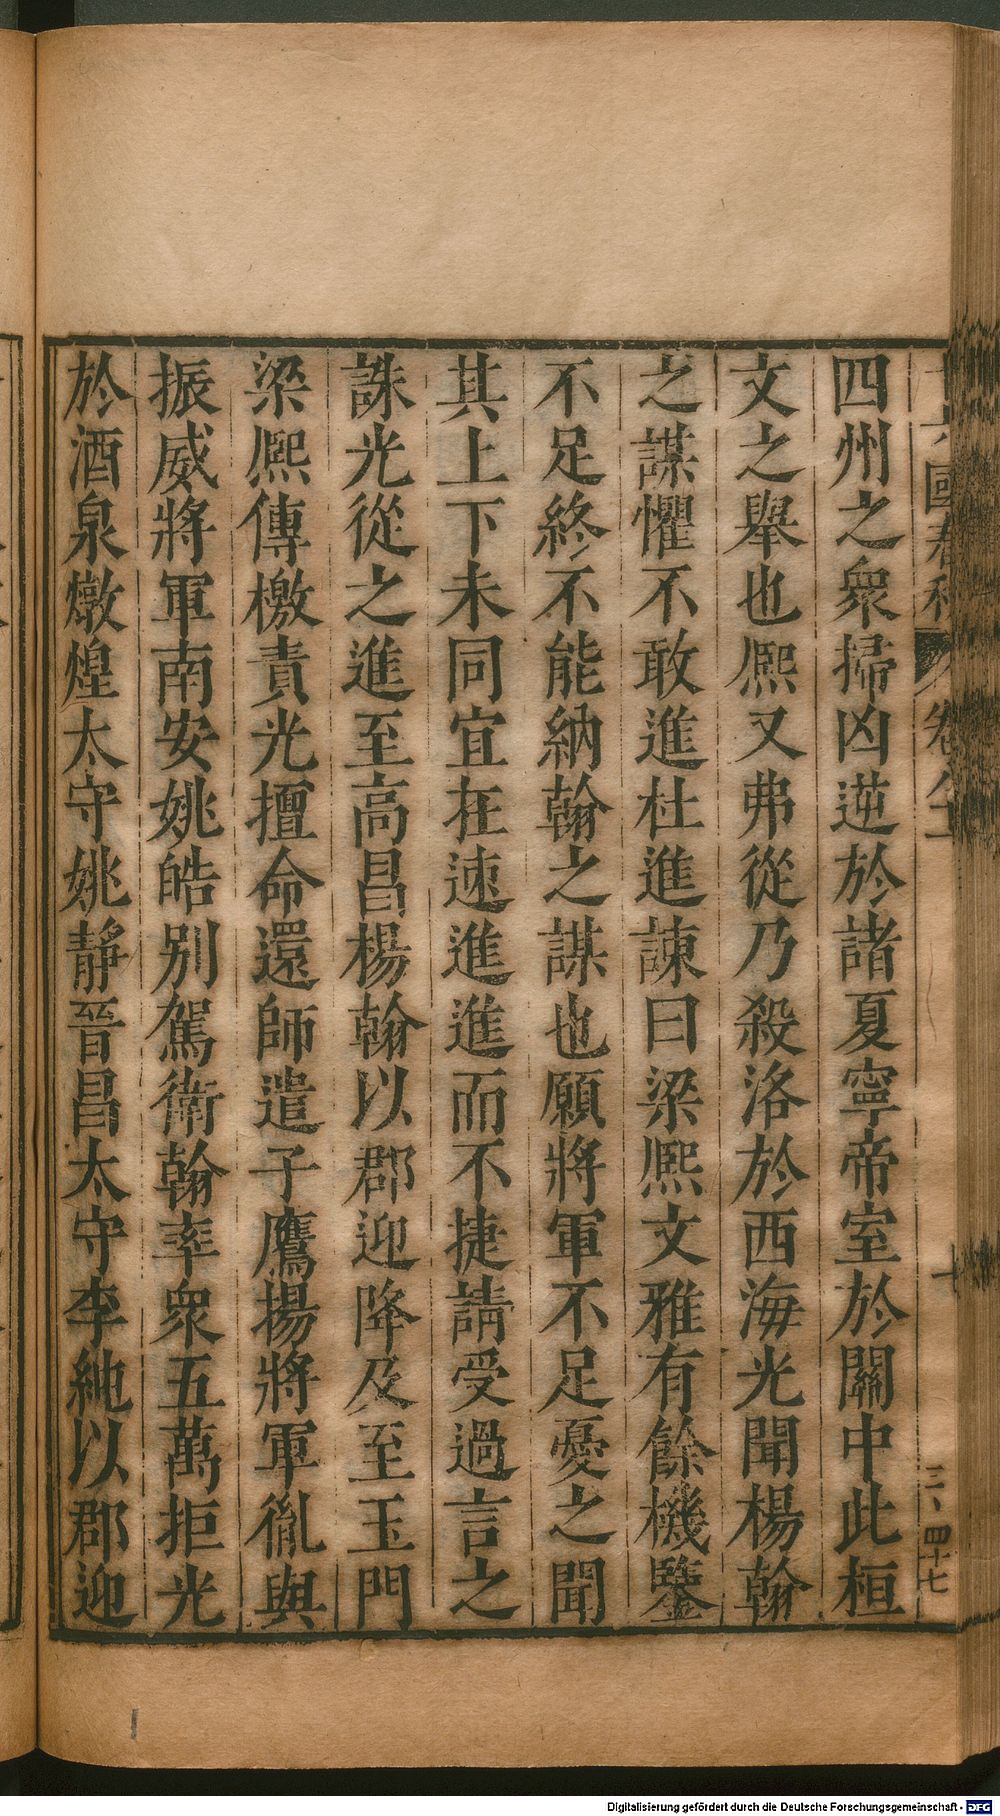 四州之衆掃凶逆於諸夏寧帝室於關中此桓
文之舉也熈又弗從乃殺洛於西海光聞楊翰
之謀懼不敢進杜進諫曰梁熈文雅有餘機鑒
不足終不能納翰之謀也願將軍不足憂之聞
其上下未同宜在速進進而不捷請受過言之
誅光從之進至高昌楊翰以郡迎降及至玉門
梁熈傳檄責光擅命還師遣子鷹揚將軍胤與
振威將軍南安姚皓別駕衛翰率衆五萬拒光
於酒泉燉煌太守姚靜晉昌太守李純以郡迎
六國春秋
卷八十
七
三、四十七
Digitalisierung gefördert durch die Deutsche Forschungsgemeinschaft - DFG